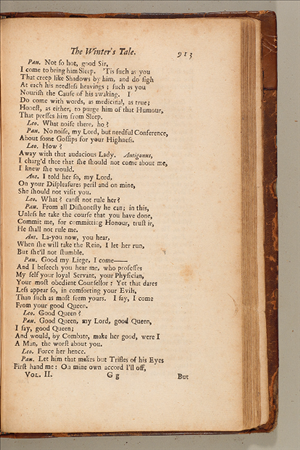 The Winter's Tale. 913
Pau. Not so hot, good Sir,
I come to bring him Sleep. 'Tis such as you
That creep like Shadows by him, and do sigh
At each his needless heavings; such as you
Nourish the Cause of his awaking. I
Do come with words, as medicinal, as true;
Honest, as either, to purge him of that Humour,
That presses him from Sleep.
Leo. What noise there, ho?
Pau. No noise, my Lord, but needful Conference,
About some Gossips for your Highness.
Leo. How?
Away with that audacious Lady. Antigonus,
I charg'd thee that she should not come about me,
I knew she would.
Ant. I told her so, my Lord,
On your Displeasures peril and on mine,
She should not visit you.
Leo. What? canst not rule her?
Pau. From all Dishonesty he can; in this,
Unless he take the course that you have done,
Commit me, for committing Honour, trust it,
He shall not rule me.
Ant. La-you now, you hear,
When she will take the Rein, I let her run,
But she'll not stumble.
Pau. Good my Liege, I come——
And I beseech you hear me, who professes
My self your loyal Servant, your Physician,
Your most obedient Counsellor: Yet that dares
Less appear so, in comforting your Evils,
Than such as most seem yours. I say, I come
From your good Queen.
Leo. Good Queen?
Pau. Good Queen, my Lord, good Queen,
I say, good Queen;
And would, by Combate, make her good, were I
A Man, the worst about you.
Leo. Force her hence.
Pau. Let him that makes but Trifles of his Eyes
First hand me: On mine own accord I'll off,
VOL. II. G g But